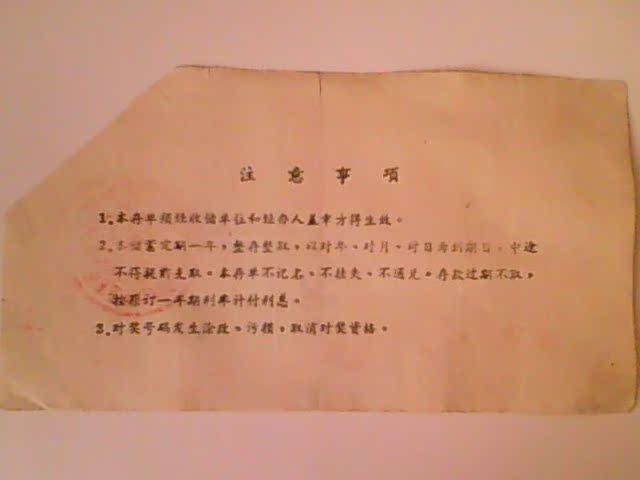 注意事項
1。本存单须经收储单位和经办人盖章方得生效。
2。本储蓄定期一年，整存整取，以对年、对月、对日为到期日。中途
不得提前支取。本存单不记名、不挂失、不通兑。存款过期不取，
按原订一年期利率计付利息。
3。对奖号码发生涂改、污损，取消对奖资格。